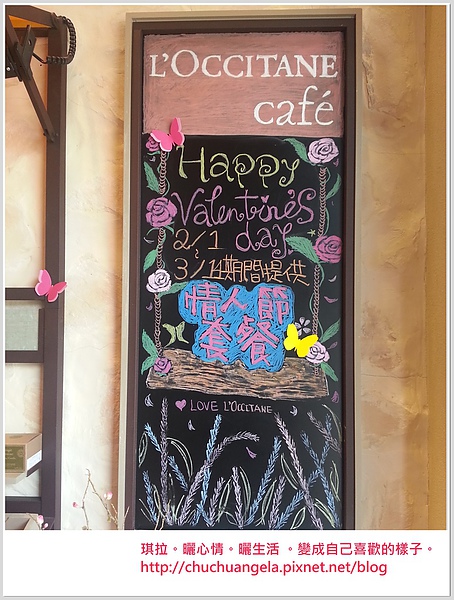 L'OCCITANE
café
Happy
Valentine's
2/1 day
3/14期間提供
情人節
套餐
LOVE L'OCCITANE
琪拉。曬心情。曬生活 。變成自己喜歡的樣子。
http://chuchuangela.pixnet.net/blog